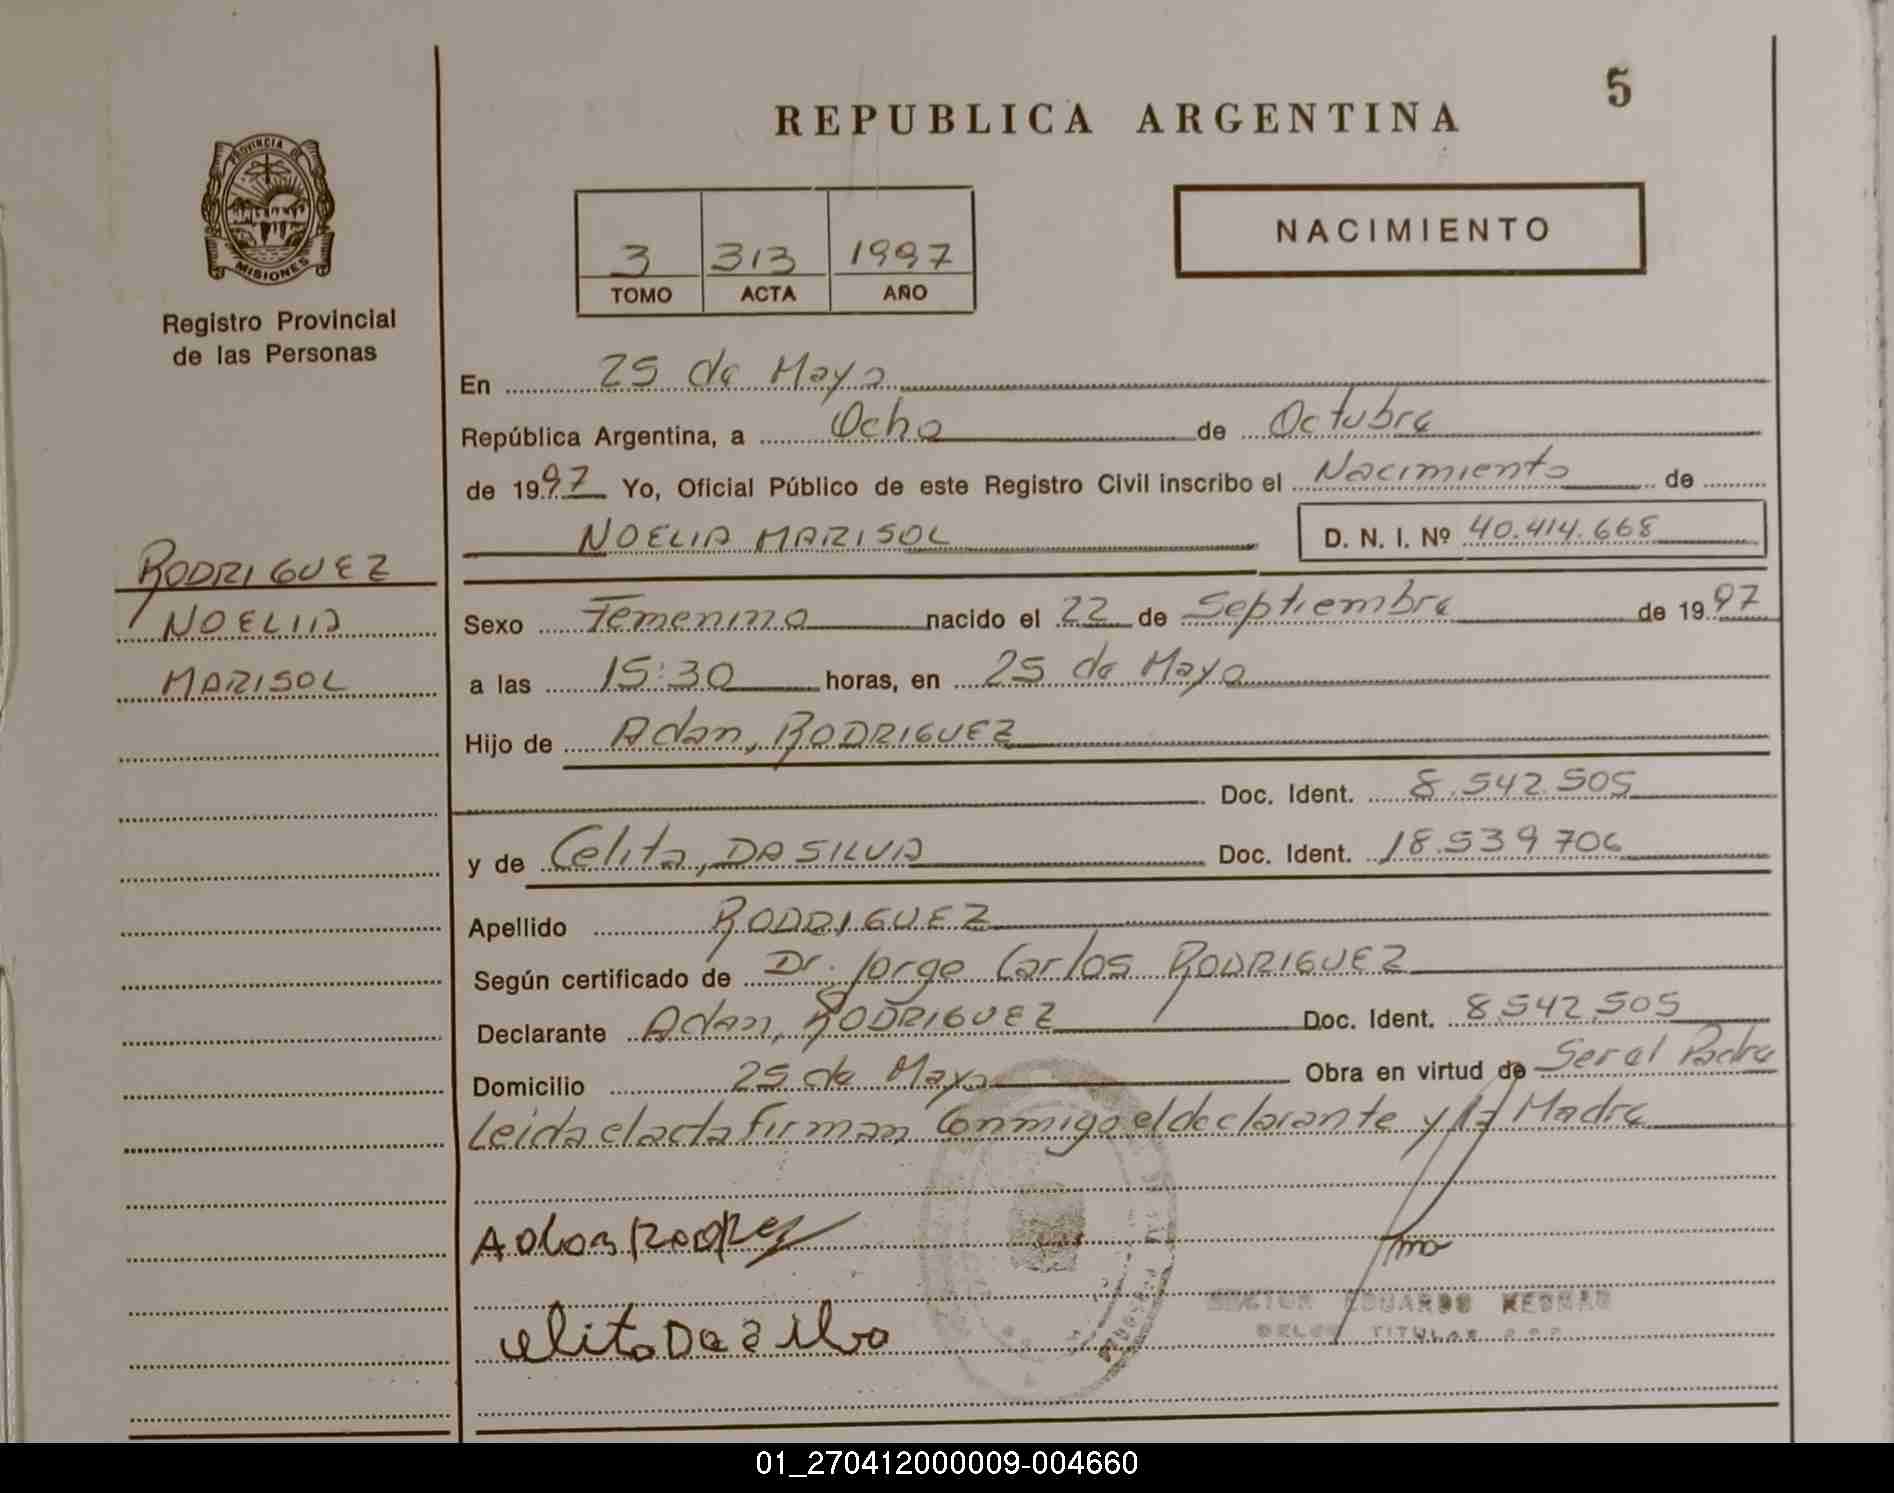 5
REPUBLICA ARGENTINA
PROVINCIA DE
MISIONES
Registro Provincial
de las Personas
3 313 1997
TOMO ACTA AÑO
NACIMIENTO
En 25 de Mayo
República Argentina, a Ocho de Octubre
de 1997 Yo, Oficial Público de este Registro Civil inscribo el Nacimiento de
NOELIA MARISOL D. N. I. Nº 40.414.668
RODRIGUEZ
NOELIA
MARISOL
Sexo Femenino nacido el 22 de Septiembre de 1997
a las 15:30 horas, en 25 de Mayo
Hijo de Adan, RODRIGUEZ
Doc. Ident. 8.542.505
y de Celita, DA SILVA Doc. Ident. 18.539706
Apellido RODRIGUEZ
Según certificado de Dr. Jorge Carlos RODRIGUEZ
Declarante Adan, RODRIGUEZ Doc. Ident. 8.542.505
Domicilio 25 de Mayo Obra en virtud de Ser el Padre
Leida el acta firman Conmigo el declarante y la Madre
EDUARDO
TITULAR
01_270412000009-004660